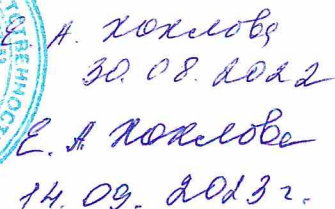 Е. А. Хохлова
30.08.2022
Е. А Хохлова
14.09. 2023 г.